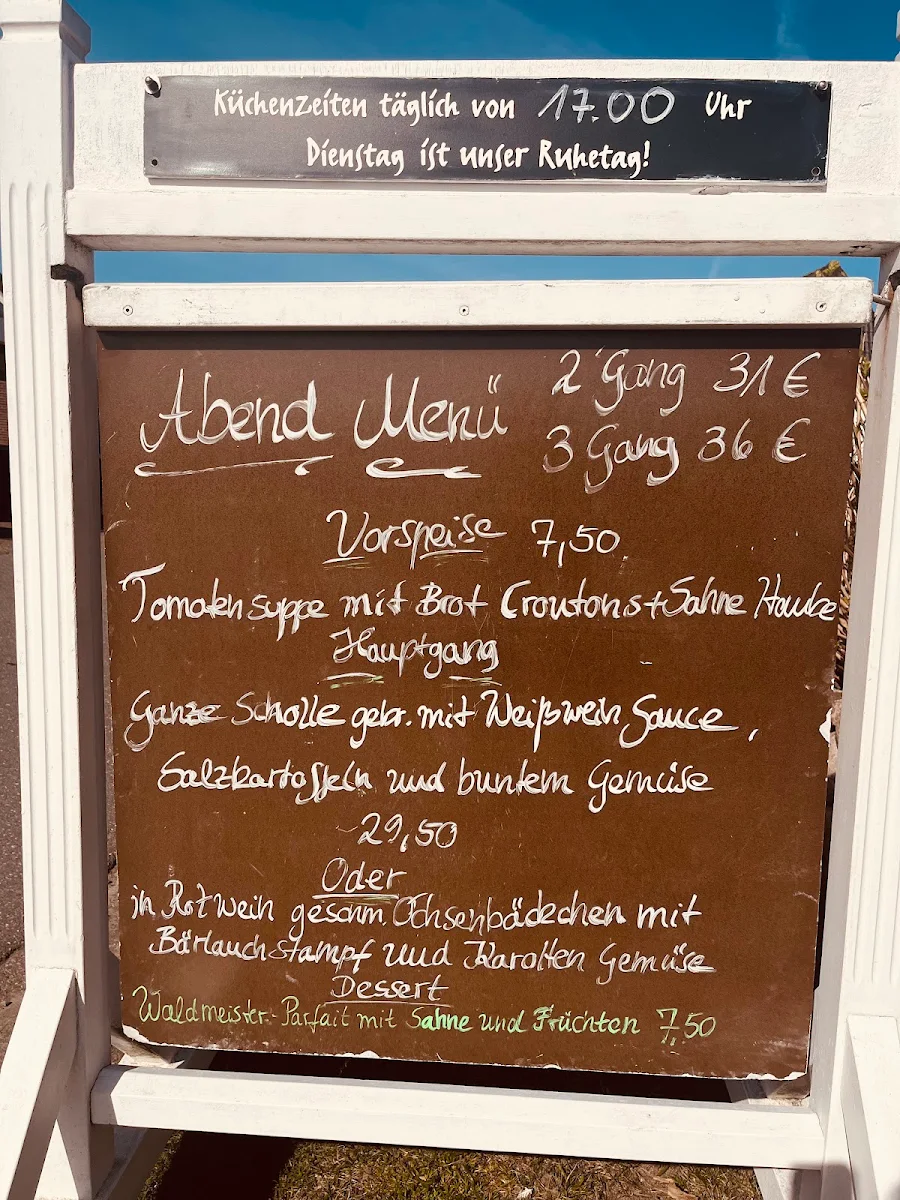 Küchenzeiten täglich von 17.00 Uhr
Dienstag ist unser Ruhetag!
Abend Menü
2 Gang 31 €
3 Gang 36 €
Vorspeise 7,50
Tomatensuppe mit Brot Croutons + Sahne Haube
Hauptgang
Ganze Scholle gebr. mit Weißwein Sauce,
Salzkartoffeln und buntem Gemüse
29,50
Oder
in Rotwein geschm. Ochsenbäckchen mit
Bärlauchstampf und Karotten Gemüse
Dessert
Waldmeister-Parfait mit Sahne und Früchten 7,50